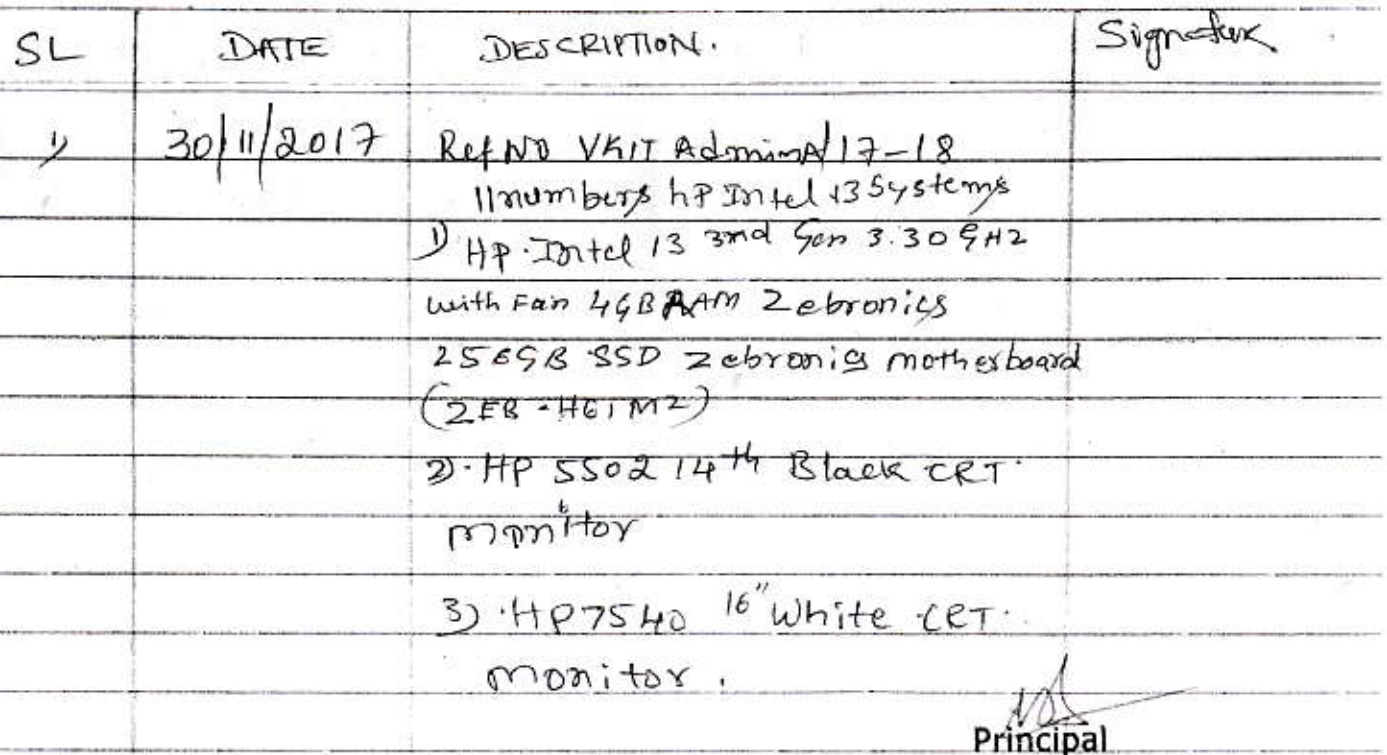 SL DATE DESCRIPTION. Signature
1) 30/11/2017 Ref NO VKIT Admin A/17-18
11 numbers hp Intel i3 Systems
1) HP. Intel i3 3nd Gen 3.30 GHZ
with Fan 4GB RAM Zebronics
256GB SSD Zebronis motherboard
(ZEB - H61M2)
2). HP 5502 14th Black CRT.
monitor
3) . HP7540 16" White CRT.
monitor.
Principal